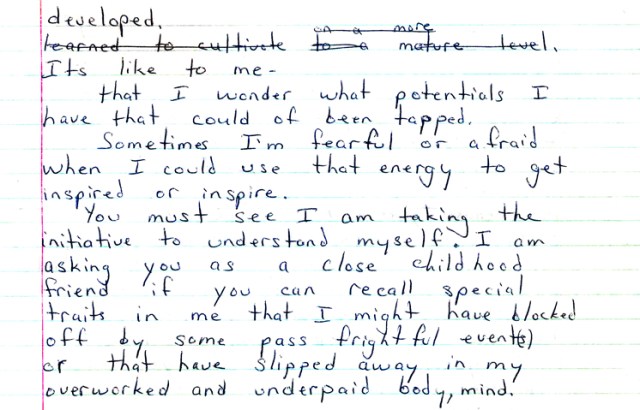 developed.
on a more
learned to cultivate to a mature level.
Its like to me -
that I wonder what potentials I
have that could of been tapped.
Sometimes I'm fearful or afraid
when I could use that energy to get
inspired or inspire.
You must see I am taking the
initiative to understand myself. I am
asking you as a close childhood
friend if you can recall special
traits in me that I might have blocked
off by some pass frightful event(s)
or that have slipped away in my
overworked and underpaid body, mind.